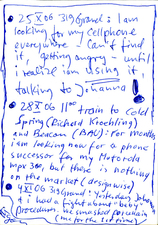 25 X 06 319 Grand: I am
looking for my cellphone
everywhere - Can't find
it, getting angry - until
I realize I am using it,
talking to Johanna!
28 X 06 11 00 train to Cold
Spring (Richard Kroehling)
and Beacon (BAU): For months
I am looking now for a phone
successor for my Motorola
mpx 200, but there is nothing
on the market (designwise)
4 XI 06 319 Grand: Yesterday Johanna
& I had a fight about "baby"
Procedures. He smashed porcelain
(me for the 1st time)